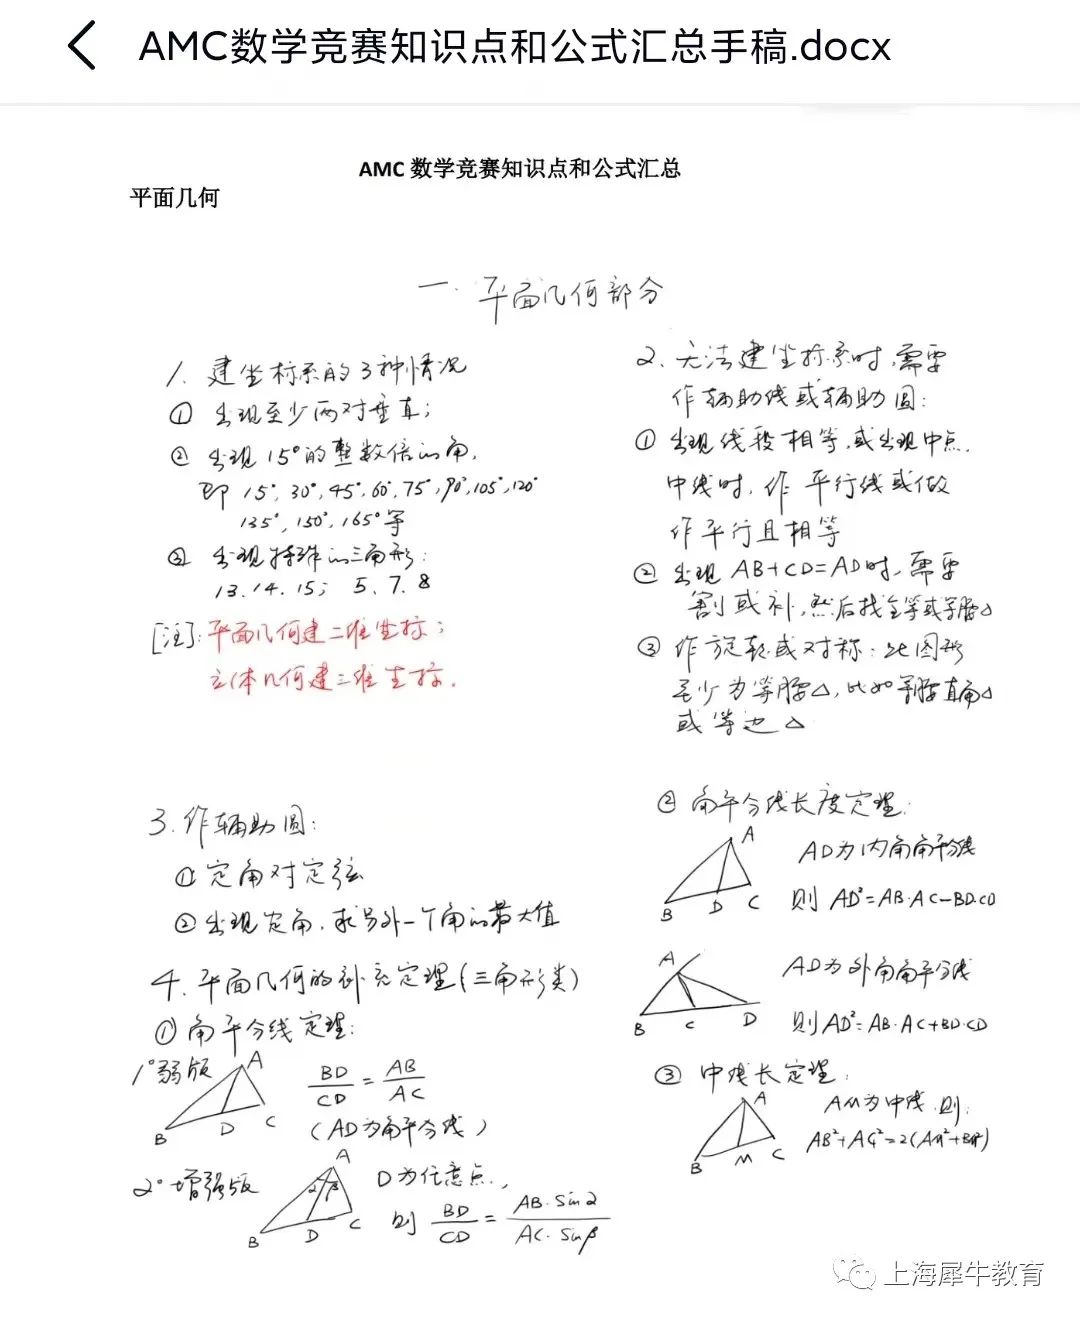 AMC数学竞赛知识点和公式汇总手稿.docx
AMC 数学竞赛知识点和公式汇总
平面几何
一. 平面几何部分
1. 建坐标系的3种情况
① 出现至少两对垂直;
② 出现15°的整数倍的角,
即 15°, 30°, 45°, 60°, 75°, 90°, 105°, 120°
135°, 150°, 165°等
③ 出现特殊的三角形:
13. 14. 15; 5. 7. 8
[注]: 平面几何建二维坐标;
立体几何建三维坐标.
2. 无法建坐标系时, 需要
作辅助线或辅助圆:
① 出现线段相等, 或出现中点,
中线时, 作平行线或做
作平行且相等
② 出现 AB+CD=AD时, 需要
割或补, 然后找全等或等腰△
③ 作旋转或对称: 此图形
至少为等腰△, 比如等腰直角△
或等边△
3. 作辅助圆:
① 定角对定弦
② 出现定角, 求另外一个角的最大值
4. 平面几何的补充定理(三角形类)
① 角平分线定理:
1°弱版
A
B
D
C
BD/CD = AB/AC
(AD为角平分线)
2°增强版
A
α β
B
D
C
D为任意点,
则 BD/CD = AB·sinα/AC·sinβ
② 角平分线长度定理:
A
B
D
C
AD为内角角平分线
则 AD²=AB·AC-BD·CD
A
B
C
D
AD为外角角平分线
则AD²=AB·AC+BD·CD
③ 中线长定理:
A
B
M
C
AM为中线, 则:
AB²+AC²=2(AM²+BM²)
上海犀牛教育